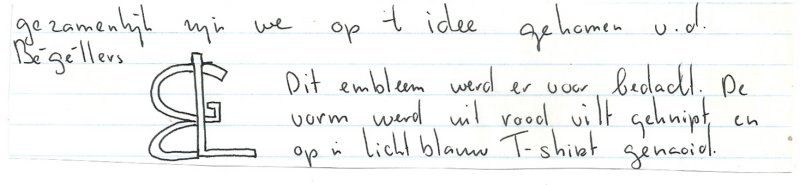 gezamenlijk zijn we op 't idee gekomen v.d.
Bé-gé-llers
BGL
Dit embleem werd er voor bedacht. De
vorm werd uit rood vilt geknipt en
op 'n licht blauw T-shirt genaaid.